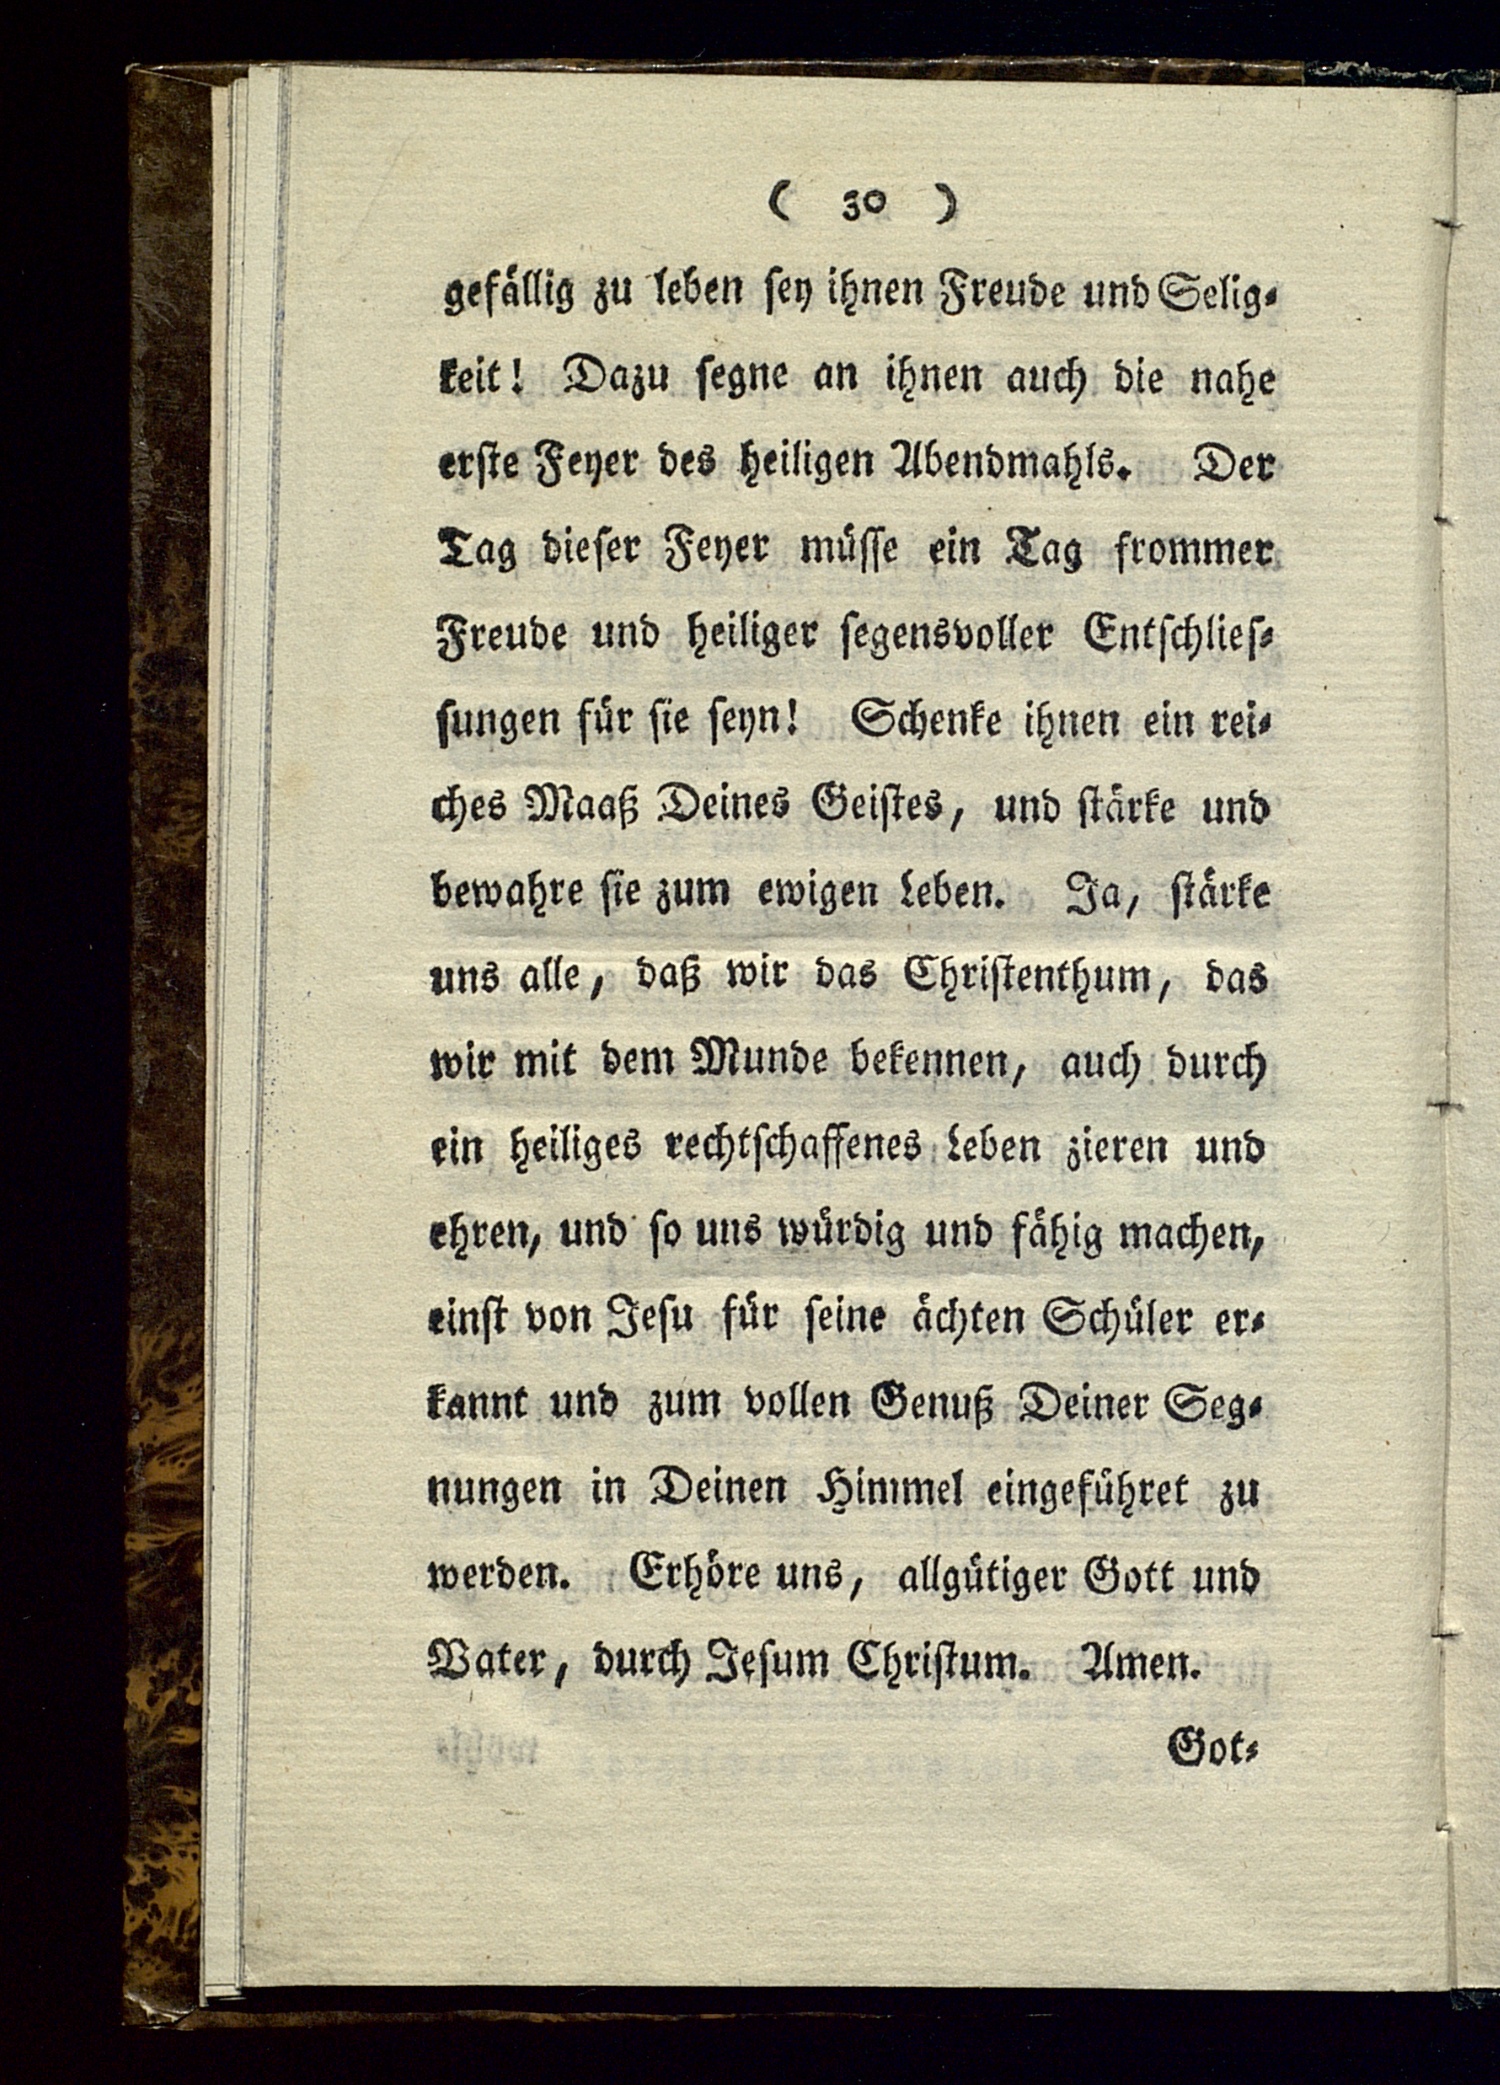 ( 30 )
gefällig zu leben sey ihnen Freude und Selig-
keit! Dazu segne an ihnen auch die nahe
erste Feyer des heiligen Abendmahls. Der
Tag dieser Feyer müsse ein Tag frommer
Freude und heiliger segensvoller Entschlies-
sungen für sie seyn! Schenke ihnen ein rei-
ches Maaß Deines Geistes, und stärke und
bewahre sie zum ewigen Leben. Ja, stärke
uns alle, daß wir das Christenthum, das
wir mit dem Munde bekennen, auch durch
ein heiliges rechtschaffenes Leben zieren und
ehren, und so uns würdig und fähig machen,
einst von Jesu für seine ächten Schüler er-
kannt und zum vollen Genuß Deiner Seg-
nungen in Deinen Himmel eingeführet zu
werden. Erhöre uns, allgütiger Gott und
Vater, durch Jesum Christum. Amen.
Got-